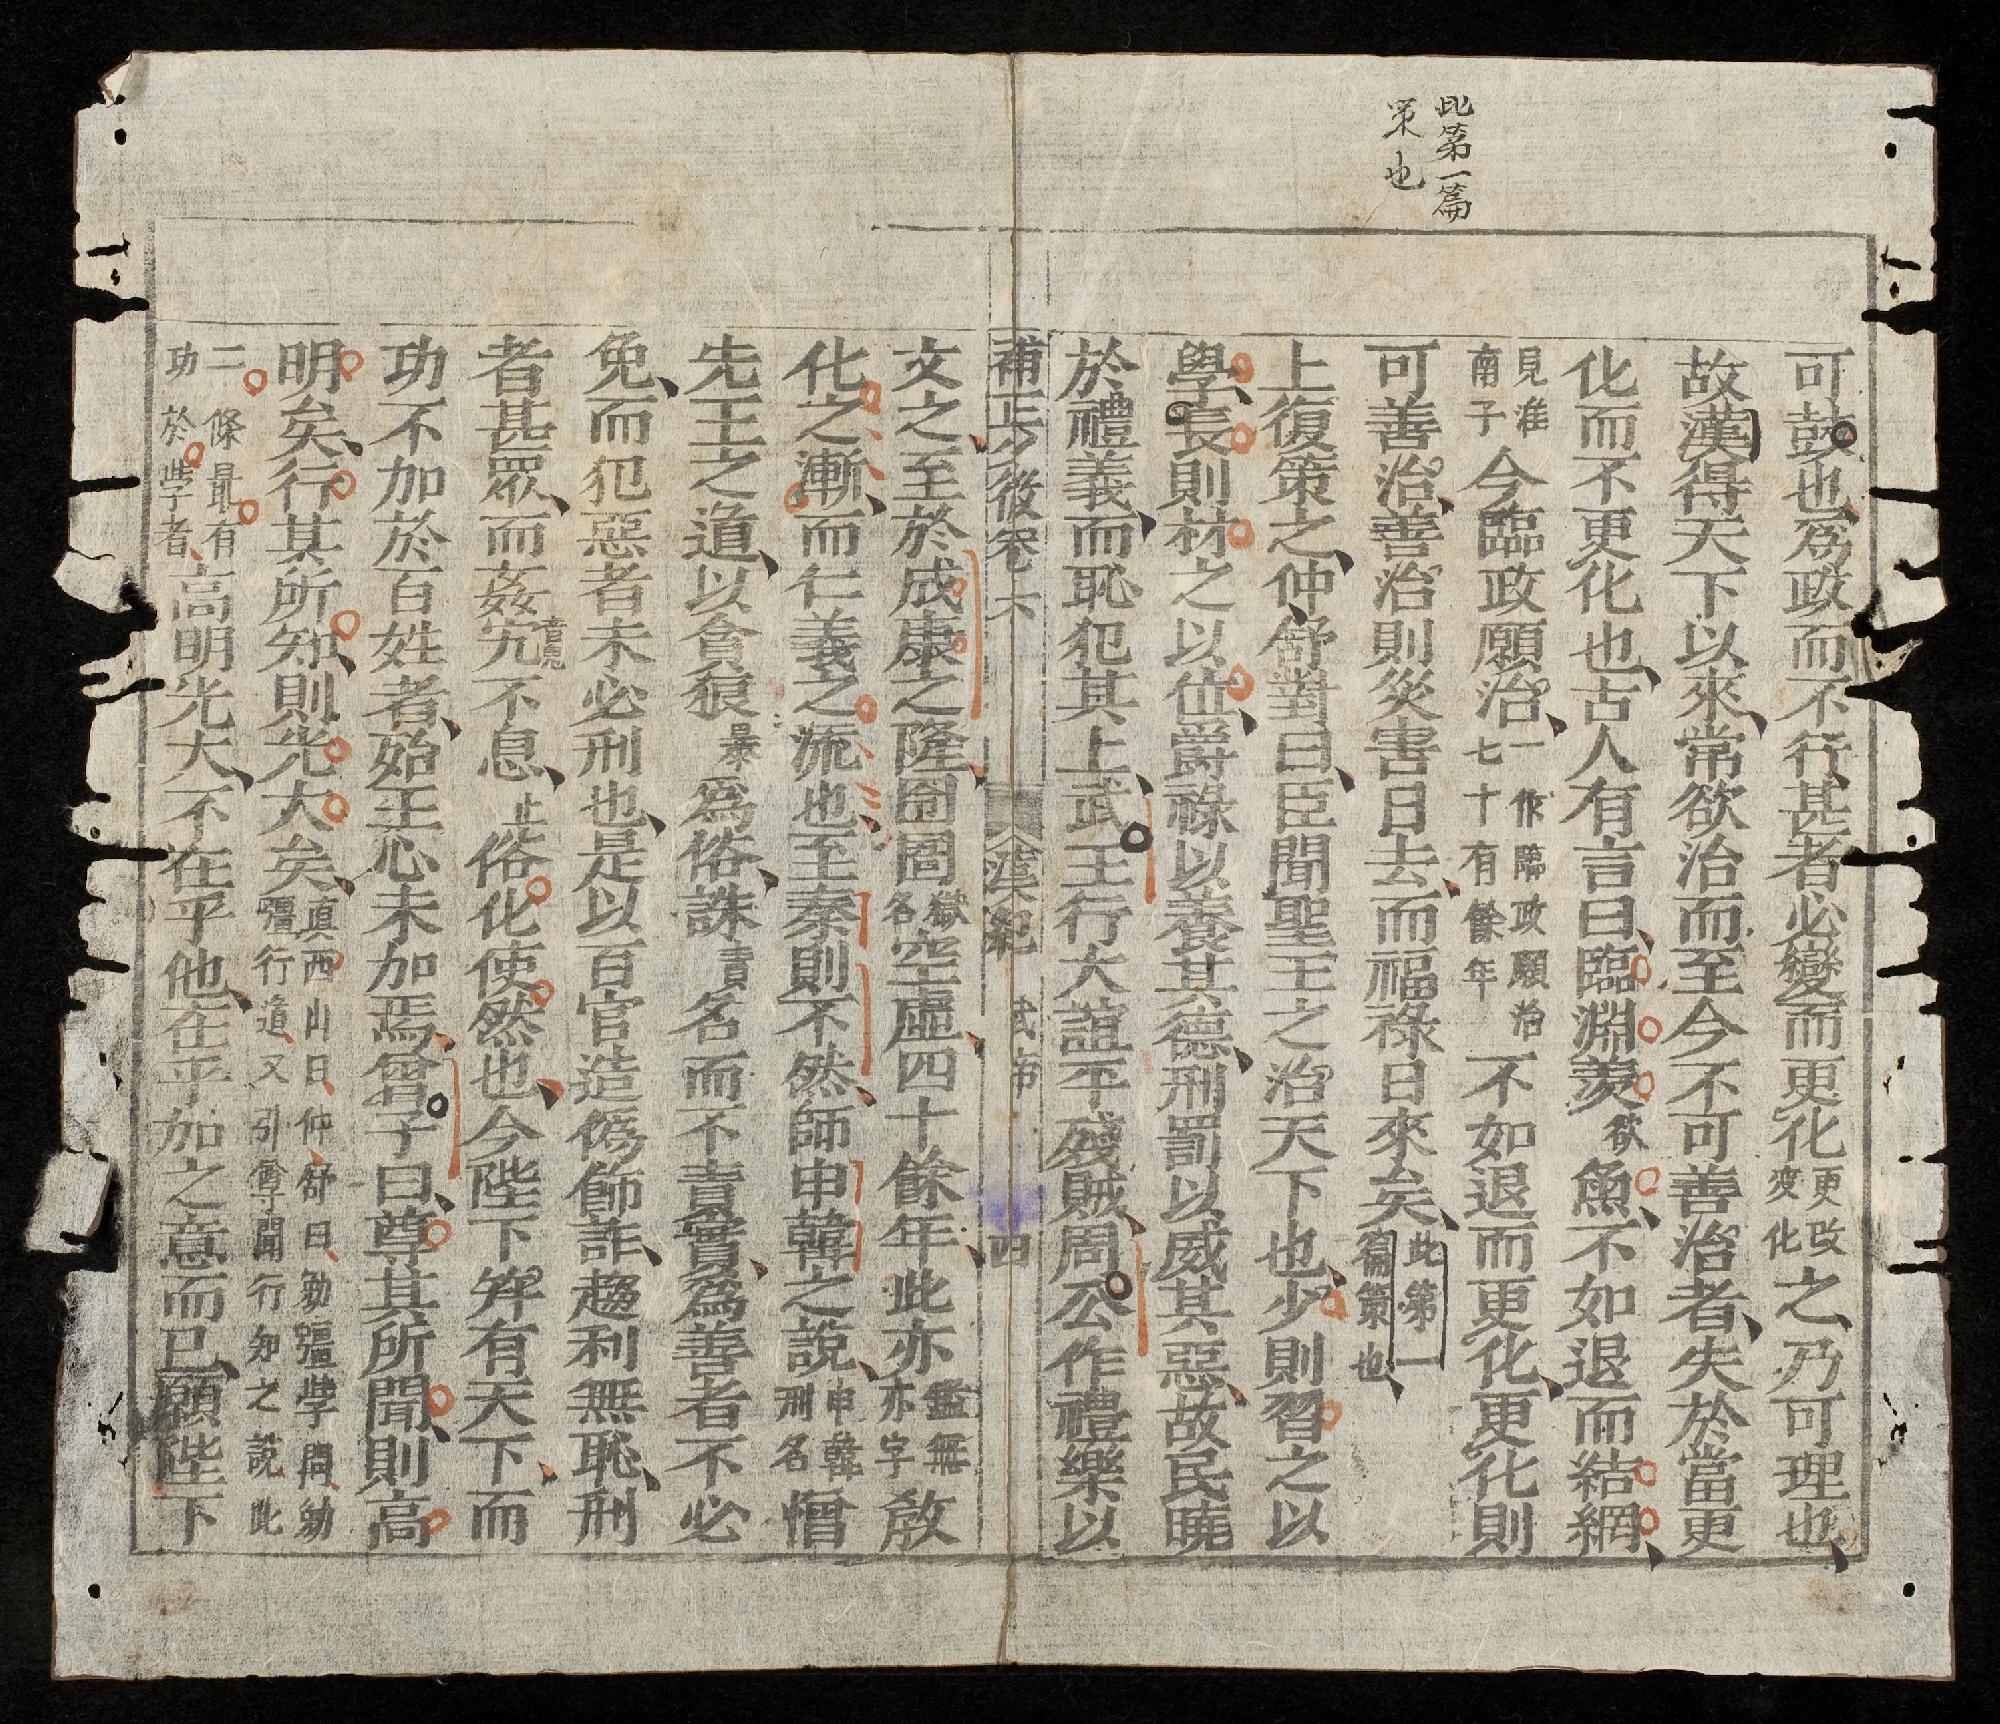 此第一篇
策也
可鼓也爲政而不行甚者必變而更化更改變化之乃可理也
故漢得天下以來常欲治而至今不可善治者失於當更
化而不更化也古人有言曰臨淵羨欲魚不如退而結網
見淮南子今臨政願治一作臨政願治七十有餘年不如退而更化更化則
可善治善治則災害日去而福祿日來矣此第一篇策也
上復策之仲舒對曰臣聞聖王之治天下也少則習之以
學長則材之以位爵祿以養其德刑罰以威其惡故民曉
於禮義而恥犯其上武王行大誼平殘賊周公作禮樂以
補正少後卷六 漢紀 武帝 四
文之至於成康之隆囹圄獄名空虛四十餘年此亦鑑無亦字敎
化之漸而仁義之流也至秦則不然師申韓之說申韓刑名憎
先王之道以貪狼最暴爲俗誅責名而不責實爲善者不必
免而犯惡者未必刑也是以百官造僞飾詐趨利無恥刑
者甚眾而姦宄音鬼不息止俗化使然也今陛下幷有天下而
功不加於百姓者殆王心未加焉曾子曰尊其所聞則高
明矣行其所知則光大矣真西山曰仲舒曰勉彊學問勉彊行道又引尊聞行知之說此
二條最有功於學者高明光大不在乎他在乎加之意而已願陛下